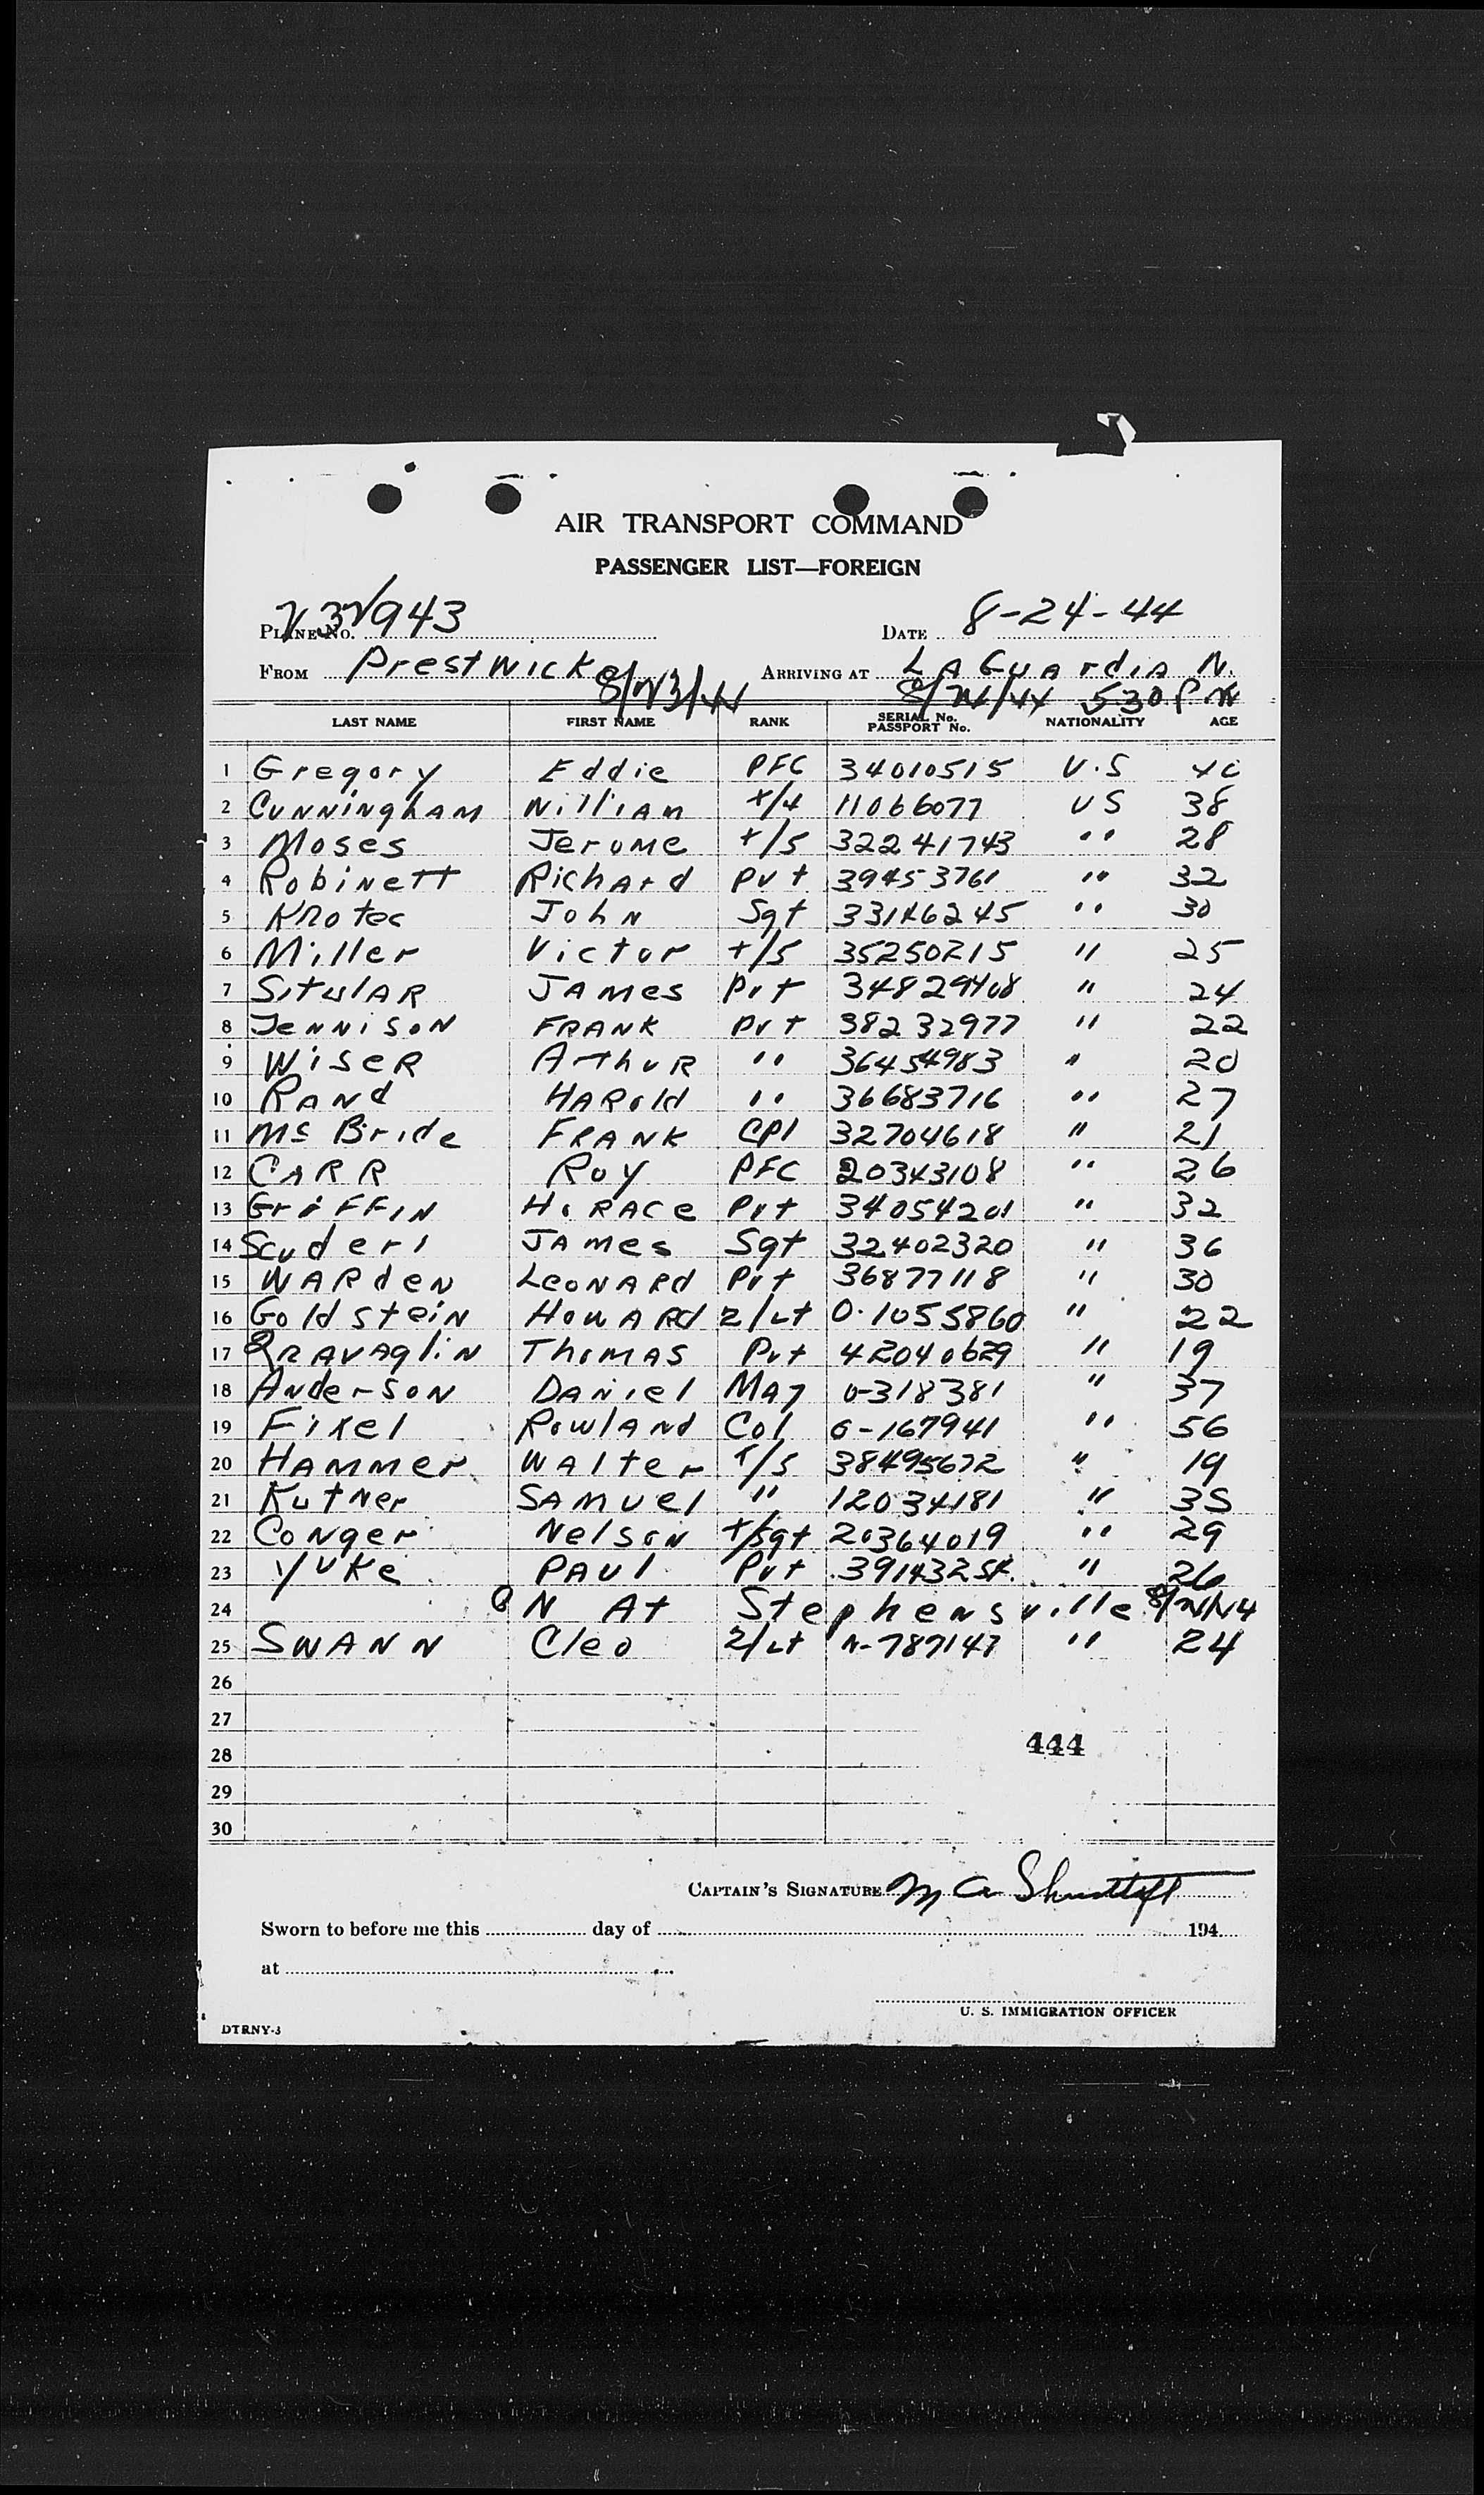 AIR TRANSPORT COMMAND
PASSENGER LIST—FOREIGN
PLANE No. 943 DATE 8-24-44
FROM Prestwick ARRIVING AT LAGuardia N.
8/23/44 8/24/44 530 P.M
LAST NAME FIRST NAME RANK SERIAL No. PASSPORT No. NATIONALITY AGE
1 Gregory Eddie PFC 34010515 U.S 40
2 Cunningham William T/4 11066077 US 38
3 Moses Jerome T/5 32241743 " 28
4 Robinett Richard Pvt 39453761 " 32
5 Krotec John Sgt 33146245 " 30
6 Miller Victor T/5 35250215 " 25
7 SitulAR JAMes Pvt 34829408 " 24
8 JENNISON FRANK Pvt 38232977 " 22
9 WiseR ArthuR " 36454983 " 20
10 RANd HARold " 36683716 " 27
11 Mc Bride FRANK Cpl 32704618 " 21
12 CARR Roy PFC 20343108 " 26
13 GriFFIN HoRACe Pvt 34054201 " 32
14 Scuderi JAmes Sgt 32402320 " 36
15 WARdeN LeoNARd Pvt 36877118 " 30
16 GoldsteiN HowARd 2/Lt 0-1055860 " 22
17 RAVAgliN ThomAS Pvt 42040629 " 19
18 AnderSoN DANiel MAJ 0-318381 " 37
19 Fixel RowlANd Col 0-167941 " 56
20 HAMMer WAlter T/5 38495672 " 19
21 KutNer SAmuel " 12034181 " 35
22 CoNger NelsoN T/Sgt 20364019 " 29
23 Yuke PAUl Pvt " 26
24 ON At Stephensville 8/24/44
25 SWANN Cleo 2/Lt N-787147 " 24
26
27
28 444
29
30
CAPTAIN'S SIGNATURE
Sworn to before me this day of 194
at
U. S. IMMIGRATION OFFICER
DTRNY-3